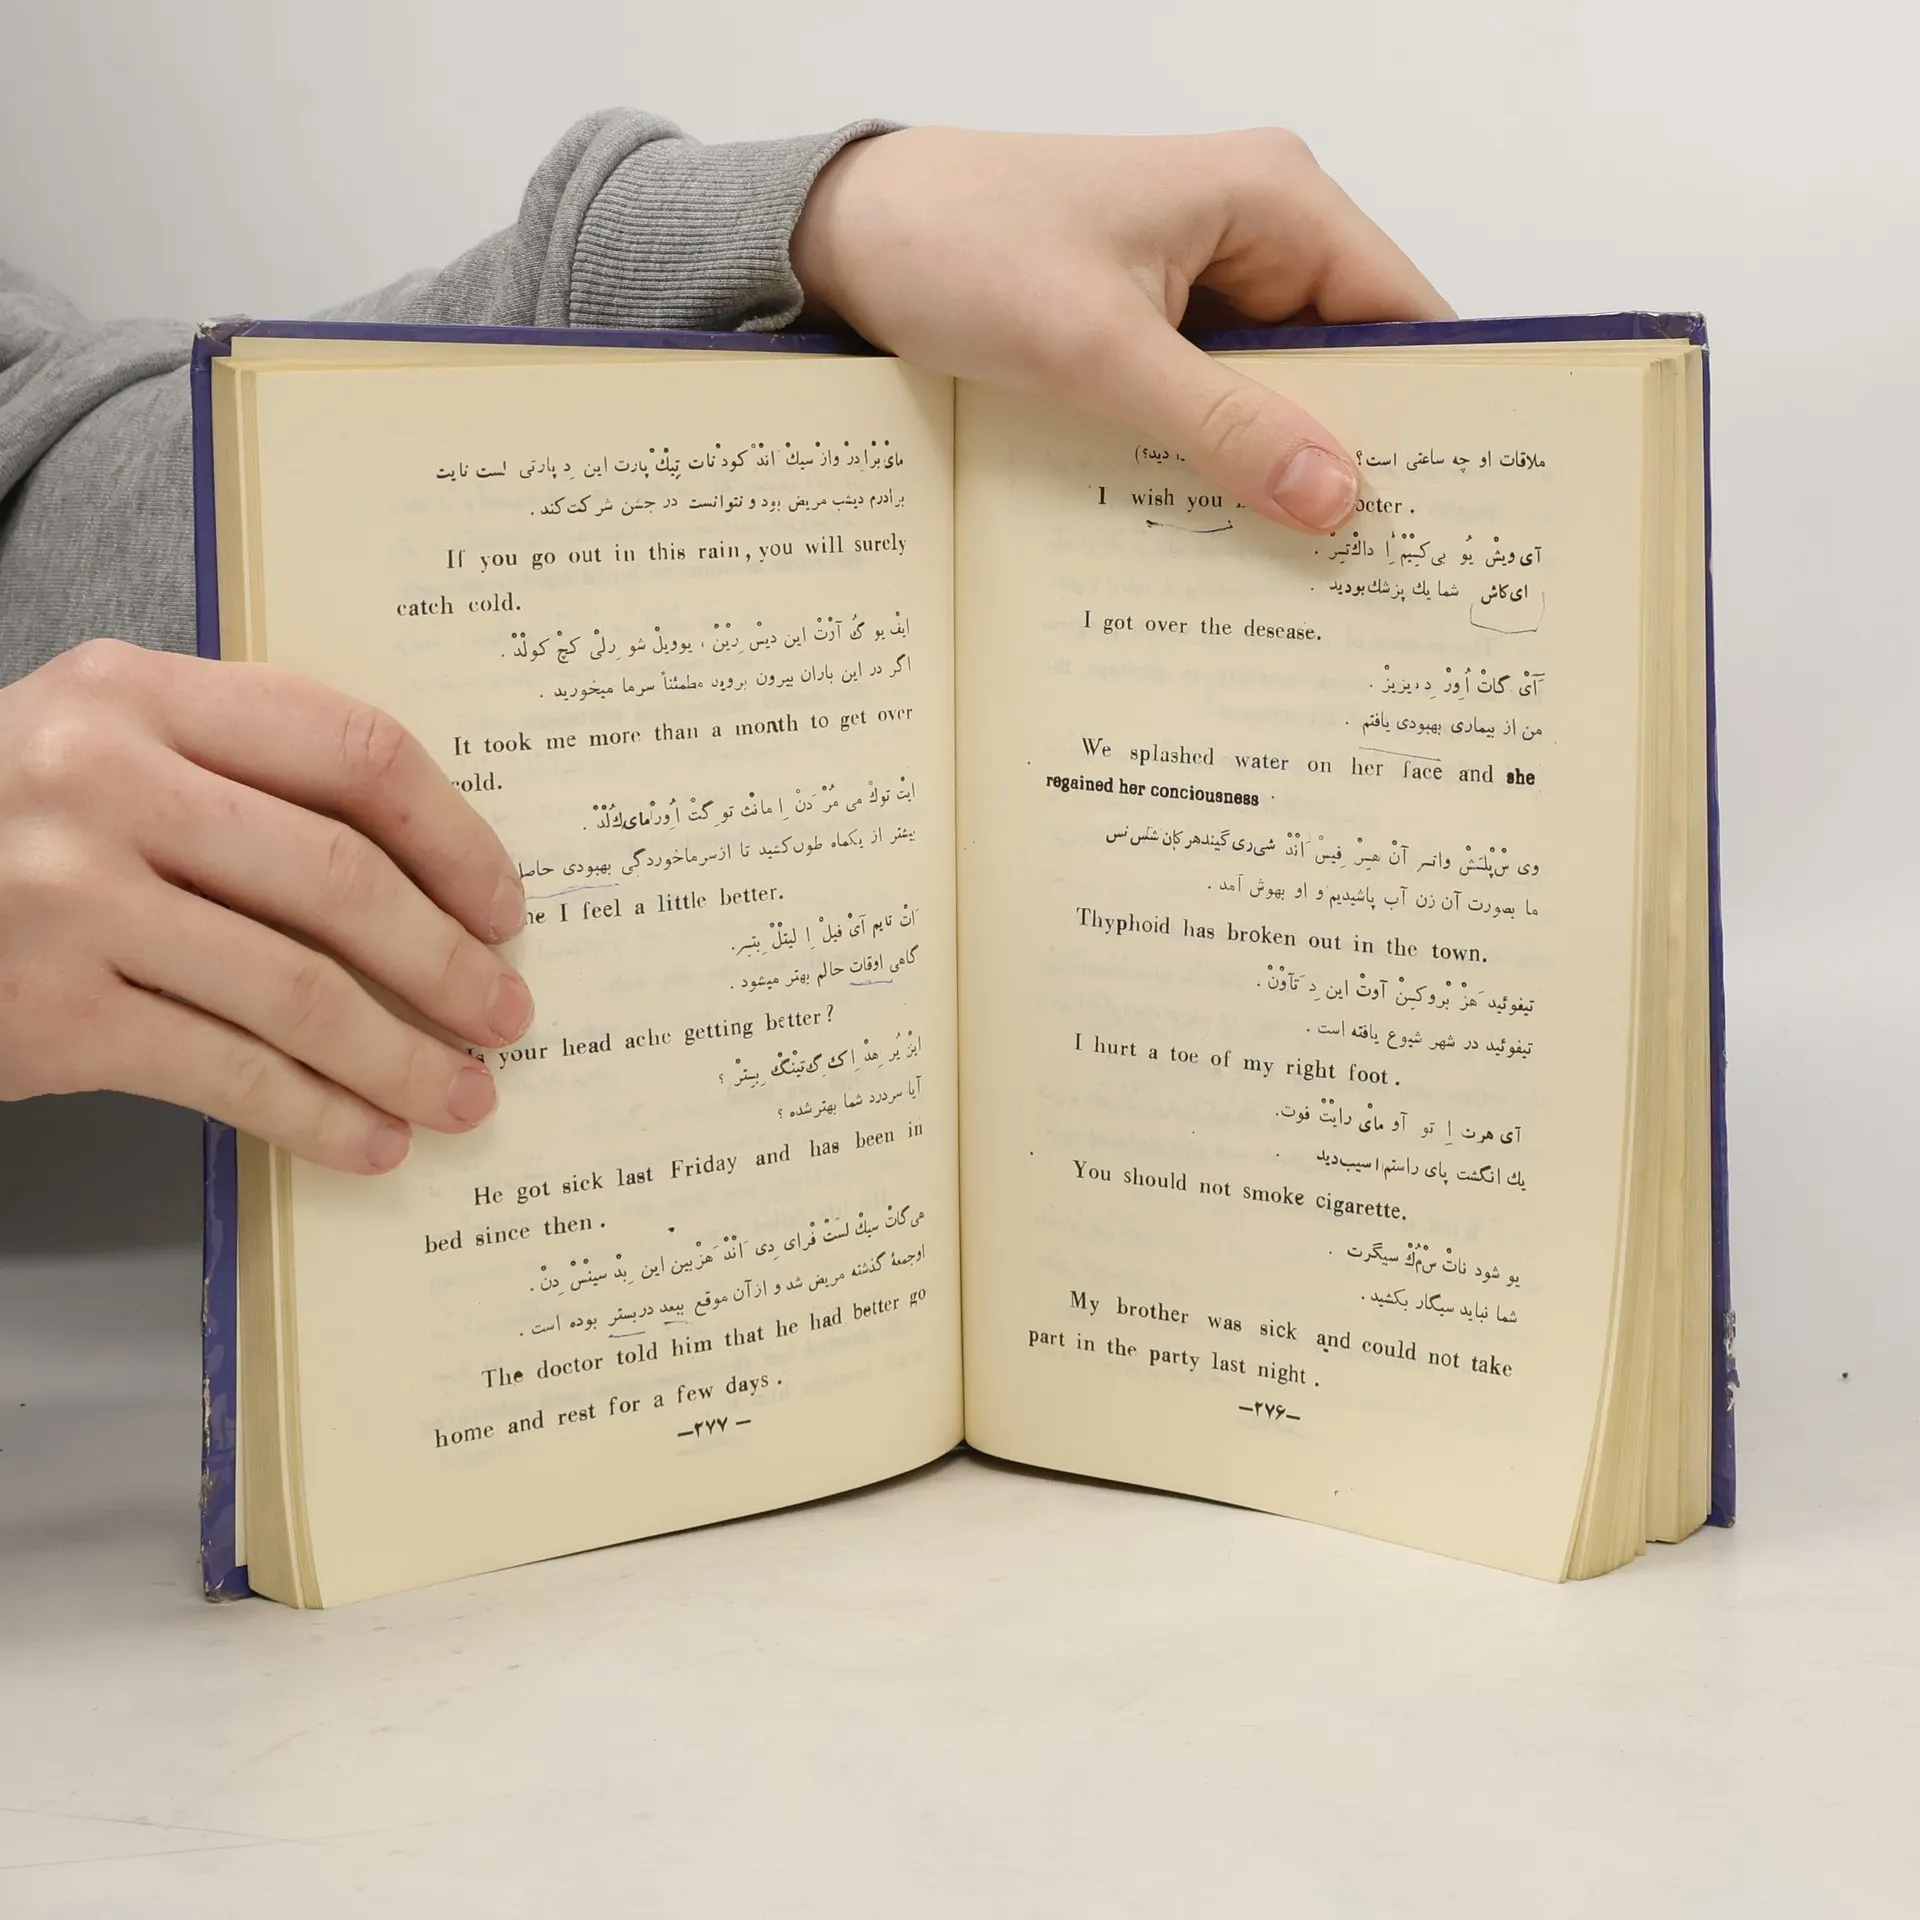 ملاقات او چه ساعتی است؟ دید؟)
I wish you octer.
آی ویش یو بی کیم اِ داکتر.
ای کاش شما یك پزشك بودید.
I got over the desease.
آی گات اُور دِ دیزیز.
من از بیماری بهبودی یافتم.
We splashed water on her face and she
regained her conciousness
وی سْپلَشْ واتر آنْ هِرْ فِیسْ اَنْدْ شی ری گیندهر کان شس نس
ما بصورت آن زن آب پاشیدیم و او بهوش آمد.
Thyphoid has broken out in the town.
تیفوئید هَزْ بْروکِنْ آوتْ این دِ تَآوْنْ.
تیفوئید در شهر شیوع یافته است.
I hurt a toe of my right foot.
آی هرت اِ تو آو مایْ رایتْ فوت.
یك انگشت پای راستم اسیب دید
You should not smoke cigarette.
یو شود ناتْ سْمُكْ سیگرت.
شما نباید سیگار بکشید.
My brother was sick and could not take
part in the party last night.
—۲۷۶—
مایْ بْرادِر وازْ سیكْ اَنْدْ کودْ نات تِیكْ پارت این دِ پارتی لست نایت
برادرم دیشب مریض بود و نتوانست در جشن شرکت کند.
If you go out in this rain, you will surely
catch cold.
ایفْ یو گُ آوْتْ این دیسْ رِیْنْ، یوویلْ شورلیْ کَچْ کولْدْ.
اگر در این باران بیرون بروید مطمئناً سرما میخورید.
It took me more than a month to get over
cold.
ایتْ توكْ می مُرْ دَنْ اِ مانث تو گِتْ اُورْ مای کُلْدْ.
بیشتر از یکماه طول کشید تا از سرماخوردگی بهبودی حاصل
I feel a little better.
اَتْ تایم آیْ فیلْ اِ لیتْلْ بِتِر.
گاهی اوقات حالم بهتر میشود.
Is your head ache getting better?
ایزْ یُر هِدْ اِك گِتینْگْ بِتِرْ؟
آیا سردرد شما بهتر شده؟
He got sick last Friday and has been in
bed since then.
هی گاتْ سیكْ لَسْتْ فْرای دِی اَنْدْ هَزْ بین این بِدْ سینْسْ دِنْ.
اوجمعهٔ گذشته مریض شد و از آن موقع ببعد در بستر بوده است.
The doctor told him that he had better go
home and rest for a few days.
—۲۷۷—